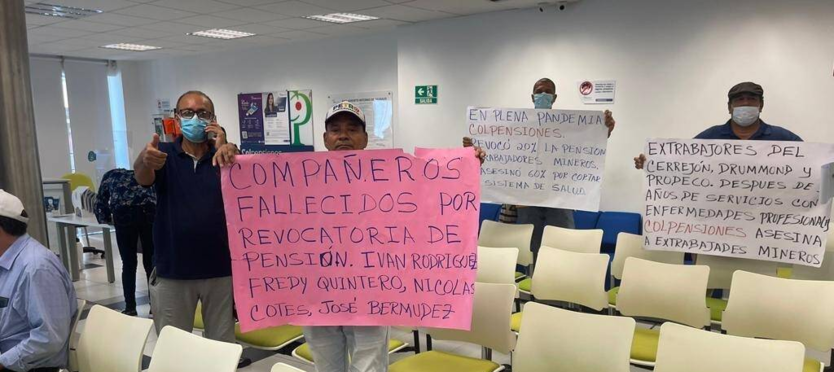 COMPAÑEROS
FALLECIDOS POR
REVOCATORIA DE
PENSIÓN. IVAN RODRIGUEZ
FREDY QUINTERO, NICOLAS
COTES, JOSÉ BERMUDEZ
EN PLENA PANDEMIA
COLPENSIONES.
REVOCÓ 20% LA PENSION
TRABAJADORES MINEROS.
ASESINO 60% POR CORTAR
SISTEMA DE SALUD.
EXTRABAJORES DEL
CERREJÓN, DRUMMOND Y
PRODECO. DESPUES DE
AÑOS DE SERVICIOS CON
ENFERMEDADES PROFESIONAL
COLPENSIONES ASESINA
A EXTRABAJADES MINEROS
SALIDA
Colpensiones